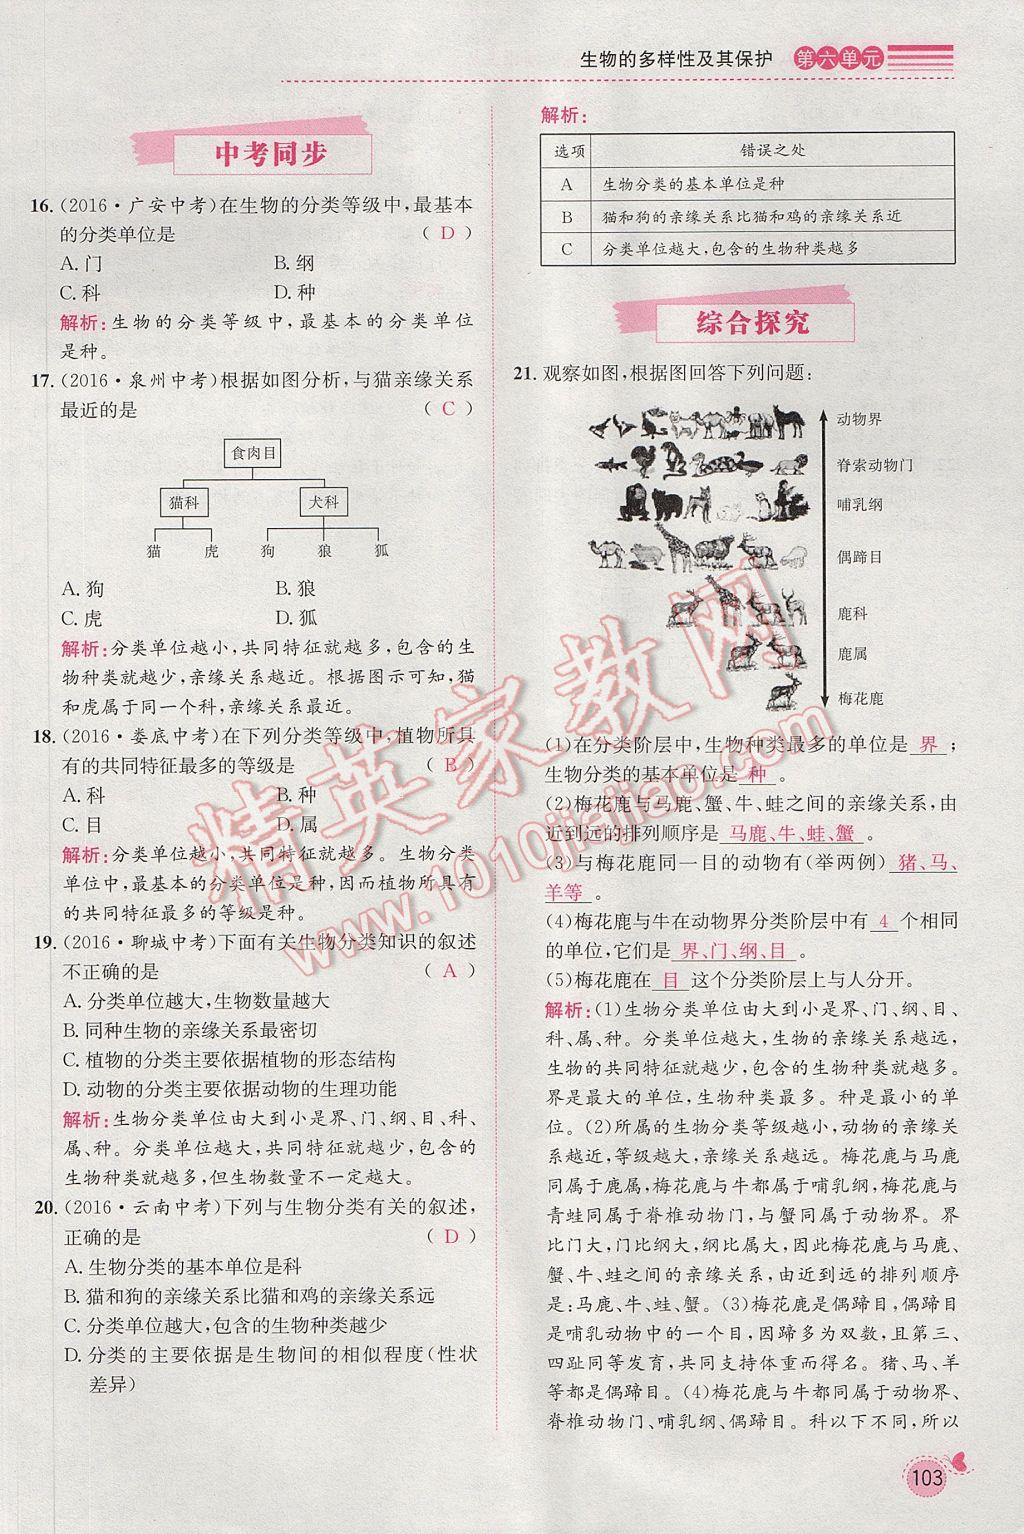 生物的多样性及其保护 第六单元
中考同步
16.(2016·广安中考)在生物的分类等级中,最基本
的分类单位是 ( D )
A.门 B.纲
C.科 D.种
解析:生物的分类等级中,最基本的分类单位
是种。
17.(2016·泉州中考)根据如图分析,与猫亲缘关系
最近的是 ( C )
食肉目
猫科 犬科
猫 虎 狗 狼 狐
A.狗 B.狼
C.虎 D.狐
解析:分类单位越小,共同特征就越多,包含的生
物种类就越少,亲缘关系越近。根据图示可知,猫
和虎属于同一个科,亲缘关系最近。
18.(2016·娄底中考)在下列分类等级中,植物所具
有的共同特征最多的等级是 ( B )
A.科 B.种
C.目 D.属
解析:分类单位越小,共同特征就越多。生物分类
单位中,最基本的分类单位是种,因而植物所具有
的共同特征最多的等级是种。
19.(2016·聊城中考)下面有关生物分类知识的叙述
不正确的是 ( A )
A.分类单位越大,生物数量越大
B.同种生物的亲缘关系最密切
C.植物的分类主要依据植物的形态结构
D.动物的分类主要依据动物的生理功能
解析:生物分类单位由大到小是界、门、纲、目、科、
属、种。分类单位越大,共同特征越少,包含的
生物种类就越多,但生物数量不一定越大。
20.(2016·云南中考)下列与生物分类有关的叙述,
正确的是 ( D )
A.生物分类的基本单位是科
B.猫和狗的亲缘关系比猫和鸡的亲缘关系远
C.分类单位越大,包含的生物种类越少
D.分类的主要依据是生物间的相似程度(性状
差异)
解析:
选项 错误之处
A 生物分类的基本单位是种
B 猫和狗的亲缘关系比猫和鸡的亲缘关系近
C 分类单位越大,包含的生物种类越多
综合探究
21.观察如图,根据图回答下列问题:
动物界
脊索动物门
哺乳纲
偶蹄目
鹿科
鹿属
梅花鹿
(1)在分类阶层中,生物种类最多的单位是 界 ;
生物分类的基本单位是 种 。
(2)梅花鹿与马鹿、蟹、牛、蛙之间的亲缘关系,由
近到远的排列顺序是 马鹿、牛、蛙、蟹 。
(3)与梅花鹿同一目的动物有(举两例) 猪、马、
羊等 。
(4)梅花鹿与牛在动物界分类阶层中有 4 个相同
的单位,它们是 界、门、纲、目 。
(5)梅花鹿在 目 这个分类阶层上与人分开。
解析:(1)生物分类单位由大到小是界、门、纲、目、
科、属、种。分类单位越大,生物的亲缘关系越远,
生物的共同特征就越少,包含的生物种类就越多。
界是最大的单位,生物种类最多。种是最小的单
位。(2)所属的生物分类等级越小,动物的亲缘关
系越近,等级越大,亲缘关系越远。梅花鹿与马鹿
同属于鹿属,梅花鹿与牛都属于哺乳纲,梅花鹿与
青蛙同属于脊椎动物门,与蟹同属于动物界。界
比门大,门比纲大,纲比属大,因此梅花鹿与马鹿、
蟹、牛、蛙之间的亲缘关系,由近到远的排列顺序
是:马鹿、牛、蛙、蟹。(3)梅花鹿是偶蹄目,偶蹄目
是哺乳动物中的一个目,因蹄多为双数,且第三、
四趾同等发育,共同支持体重而得名。猪、马、羊
等都是偶蹄目。(4)梅花鹿与牛都同属于动物界、
脊椎动物门、哺乳纲、偶蹄目。科以下不同,所以
103
精英家教网
www.1010jiajiao.com